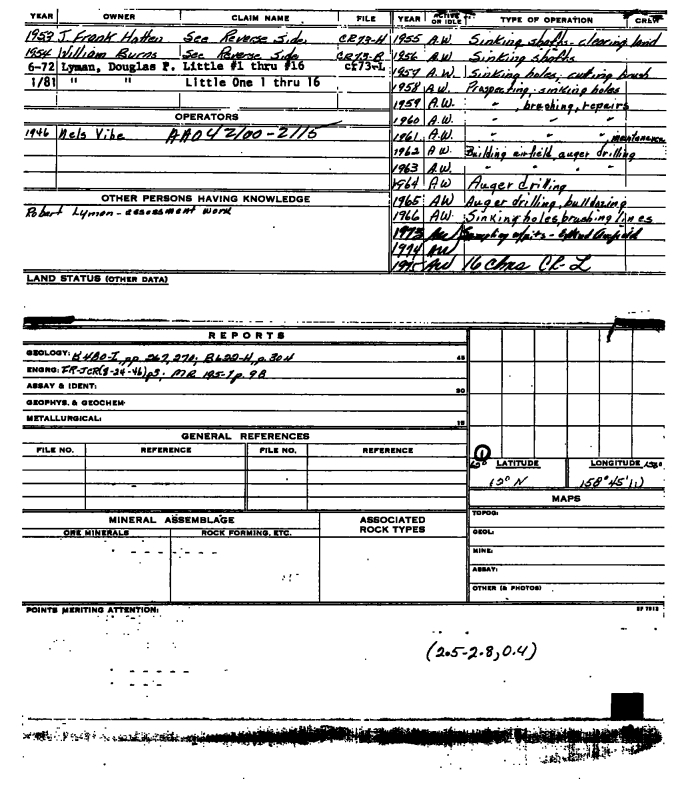 YEAR OWNER CLAIM NAME FILE YEAR ACTIVE OR IDLE TYPE OF OPERATION CREW
1953 J. Frank Hatten See Reverse Side. CR73-H 1955 A.W. Sinking shafts- clearing land
1954 William Burns See Reverse Side. CR73-B 1956 A.W. Sinking shafts
6-72 Lyman, Douglas P. Little #1 thru #16 CR73-L 1957 A.W. Sinking holes, cutting brush
1/81 " " Little One 1 thru 16 1958 A.W. Prospecting, sinking holes
1959 A.W. " , brushing, repairs
OPERATORS 1960 A.W. " " "
1946 Nels Vibe AA042100-2115 1961 A.W. " " " maintenance
1962 A.W. Building airfield, auger drilling
1963 A.W. " " " "
1964 A.W. Auger drilling
OTHER PERSONS HAVING KNOWLEDGE 1965 AW Auger drilling, bulldozing
Robert Lyman - assessment work 1966 AW. Sinking holes, brushing lines
1973 AW Sampling of pits -
1974 AW
1975 AW 16 clms CR-L
LAND STATUS (OTHER DATA)
REPORTS
GEOLOGY: pp 267, 270; B622-H, p. 304 45
ENGRG: FR-JCR(8-24-46) p3; MR 195-1 p. 98
ASSAY & IDENT: 30
GEOPHYS. & GEOCHEM:
METALLURGICAL: 15
GENERAL REFERENCES
FILE NO. REFERENCE FILE NO. REFERENCE
1
LATITUDE LONGITUDE
158°45'
MAPS
MINERAL ASSEMBLAGE ASSOCIATED ROCK TYPES TOPOG:
ORE MINERALS ROCK FORMING, ETC. GEOL:
MINE:
ASSAY:
OTHER (& PHOTOS)
POINTS MERITING ATTENTION:
(2.5-2.8, 0.4)